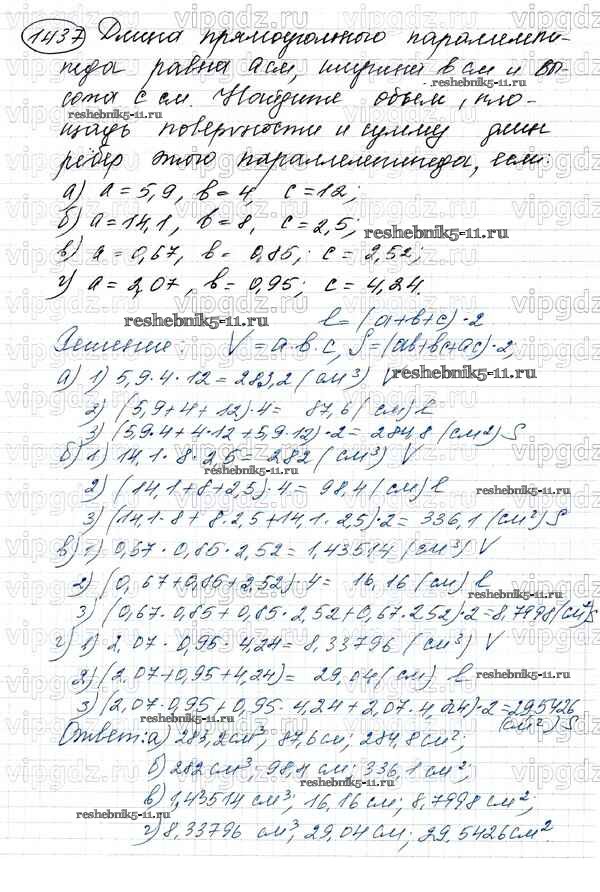 1437 Длина прямоугольного параллелепи-
педа равна a см, ширина b см и вы-
сота c см. Найдите объем, пло-
щадь поверхности и сумму длин
ребер этого параллелепипеда, если:
а) a = 5,9, b = 4, c = 12;
б) a = 14,1, b = 8, c = 2,5;
в) a = 0,67, b = 0,85; c = 2,52;
г) a = 2,07, b = 0,95; c = 4,24.
l = (a+b+c)·2
Решение: V = a·b·c, S = (ab+bc+ac)·2
а) 1) 5,9·4·12 = 283,2 (см³) V
2) (5,9+4+12)·4 = 87,6 (см) l
3) (5,9·4+4·12+5,9·12)·2 = 284,8 (см2) S
б) 1) 14,1·8·2,5 = 282 (см³) V
2) (14,1+8+2,5)·4 = 98,4 (см) l
3) (14,1·8+8·2,5+14,1·2,5)·2 = 336,1 (см²) S
в) 1) 0,67·0,85·2,52 = 1,43514 (см³) V
2) (0,67+0,85+2,52)·4 = 16,16 (см) l
3) (0,67·0,85+0,85·2,52+0,67·2,52)·2 = 8,7998 (см²) S
г) 1) 2,07·0,95·4,24 = 8,33796 (см³) V
2) (2,07+0,95+4,24) = 29,04 (см) l
3) (2,07·0,95+0,95·4,24+2,07·4,24)·2 = 29,5426
(см²) S
Ответ: а) 283,2 см³; 87,6 см; 284,8 см²;
б) 282 см³; 98,4 см; 336,1 см²;
в) 1,43514 см³; 16,16 см; 8,7998 см²;
г) 8,33796 см³; 29,04 см; 29,5426 см².
vipgdz.ru
reshebnik5-11.ru